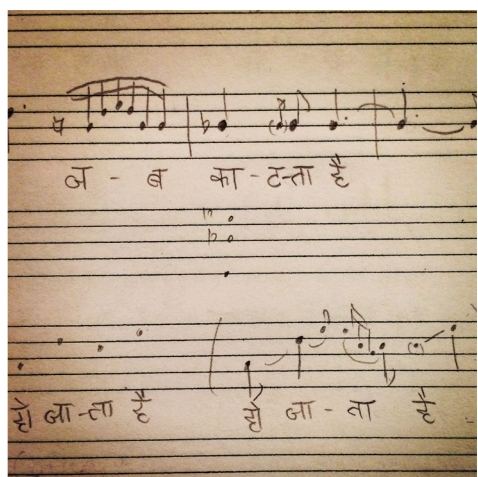 ज - ब का - ट-ता है
हो जा-ता है हो जा - ता है